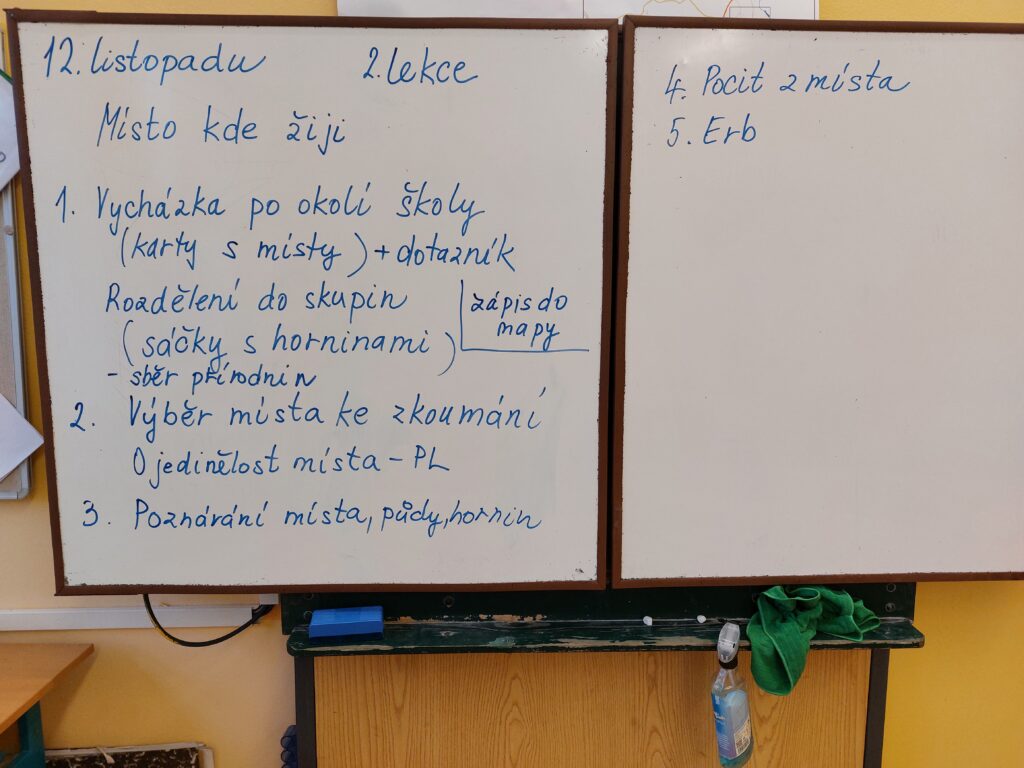 12. listopadu 2. lekce
Místo kde žiji
1. Vycházka po okolí školy
(karty s místy) + dotazník
Rozdělení do skupin
(sáčky s horninami)
zápis do
mapy
- sběr přírodnin
2. Výběr místa ke zkoumání
Ojedinělost místa - PL
3. Poznávání místa, půdy, hornin
4. Pocit z místa
5. Erb